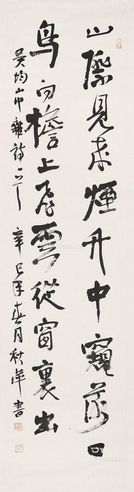 山際見來煙竹中窺落日
鳥向檐上飛雲從窗裏出
吳均山中雜詩之一 辛巳年春月秋萍書